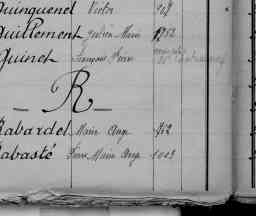 Quinquenel Victor 948
Quillement Julien Marie 1252
Quinet François Pierre
R
Rabardel Marie Ange 712
Rabasté Pierre Marie Ange 1003